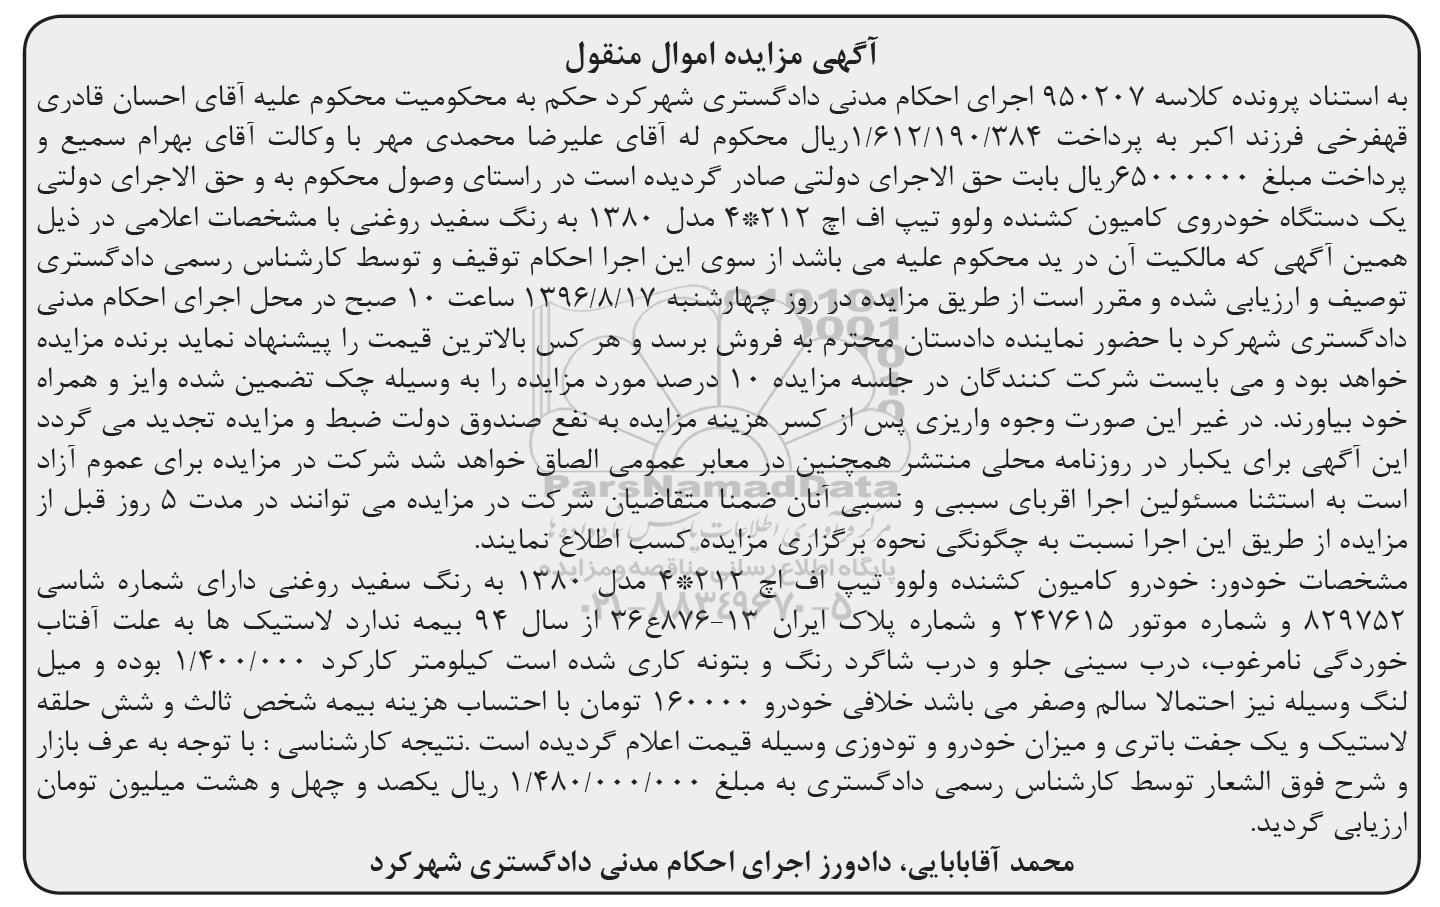 آگهی مزایده اموال منقول
به استناد پرونده کلاسه ۹۵۰۲۰۷ اجرای احکام مدنی دادگستری شهرکرد حکم به محکومیت محکوم علیه آقای احسان قادری
قهفرخی فرزند اکبر به پرداخت ۱/۶۱۲/۱۹۰/۳۸۴ریال محکوم له آقای علیرضا محمدی مهر با وکالت آقای بهرام سمیع و
پرداخت مبلغ ۶۵۰۰۰۰۰۰ریال بابت حق الاجرای دولتی صادر گردیده است در راستای وصول محکوم به و حق الاجرای دولتی
یک دستگاه خودروی کامیون کشنده ولوو تیپ اف اچ ۲۱۲*۴ مدل ۱۳۸۰ به رنگ سفید روغنی با مشخصات اعلامی در ذیل
همین آگهی که مالکیت آن در ید محکوم علیه می باشد از سوی این اجرا احکام توقیف و توسط کارشناس رسمی دادگستری
توصیف و ارزیابی شده و مقرر است از طریق مزایده در روز چهارشنبه ۱۳۹۶/۸/۱۷ ساعت ۱۰ صبح در محل اجرای احکام مدنی
دادگستری شهرکرد با حضور نماینده دادستان محترم به فروش برسد و هر کس بالاترین قیمت را پیشنهاد نماید برنده مزایده
خواهد بود و می بایست شرکت کنندگان در جلسه مزایده ۱۰ درصد مورد مزایده را به وسیله چک تضمین شده وایز و همراه
خود بیاورند. در غیر این صورت وجوه واریزی پس از کسر هزینه مزایده به نفع صندوق دولت ضبط و مزایده تجدید می گردد
این آگهی برای یکبار در روزنامه محلی منتشر همچنین در معابر عمومی الصاق خواهد شد شرکت در مزایده برای عموم آزاد
است به استثنا مسئولین اجرا اقربای سببی و نسبی آنان ضمنا متقاضیان شرکت در مزایده می توانند در مدت ۵ روز قبل از
مزایده از طریق این اجرا نسبت به چگونگی نحوه برگزاری مزایده کسب اطلاع نمایند.
مشخصات خودور: خودرو کامیون کشنده ولوو تیپ اف اچ ۲۱۲*۴ مدل ۱۳۸۰ به رنگ سفید روغنی دارای شماره شاسی
۸۲۹۷۵۲ و شماره موتور ۲۴۷۶۱۵ و شماره پلاک ایران ۱۳-۸۷۶ع۳۶ از سال ۹۴ بیمه ندارد لاستیک ها به علت آفتاب
خوردگی نامرغوب، درب سینی جلو و درب شاگرد رنگ و بتونه کاری شده است کیلومتر کارکرد ۱/۴۰۰/۰۰۰ بوده و میل
لنگ وسیله نیز احتمالا سالم وصفر می باشد خلافی خودرو ۱۶۰۰۰۰ تومان با احتساب هزینه بیمه شخص ثالث و شش حلقه
لاستیک و یک جفت باتری و میزان خودرو و تودوزی وسیله قیمت اعلام گردیده است .نتیجه کارشناسی : با توجه به عرف بازار
و شرح فوق الشعار توسط کارشناس رسمی دادگستری به مبلغ ۱/۴۸۰/۰۰۰/۰۰۰ ریال یکصد و چهل و هشت میلیون تومان
ارزیابی گردید.
محمد آقابابایی، دادورز اجرای احکام مدنی دادگستری شهرکرد
ParsNamadData
پایگاه اطلاع رسانی مناقصه و مزایده
۰۲۱-۸۸۳۴۹۶۷۰-۵